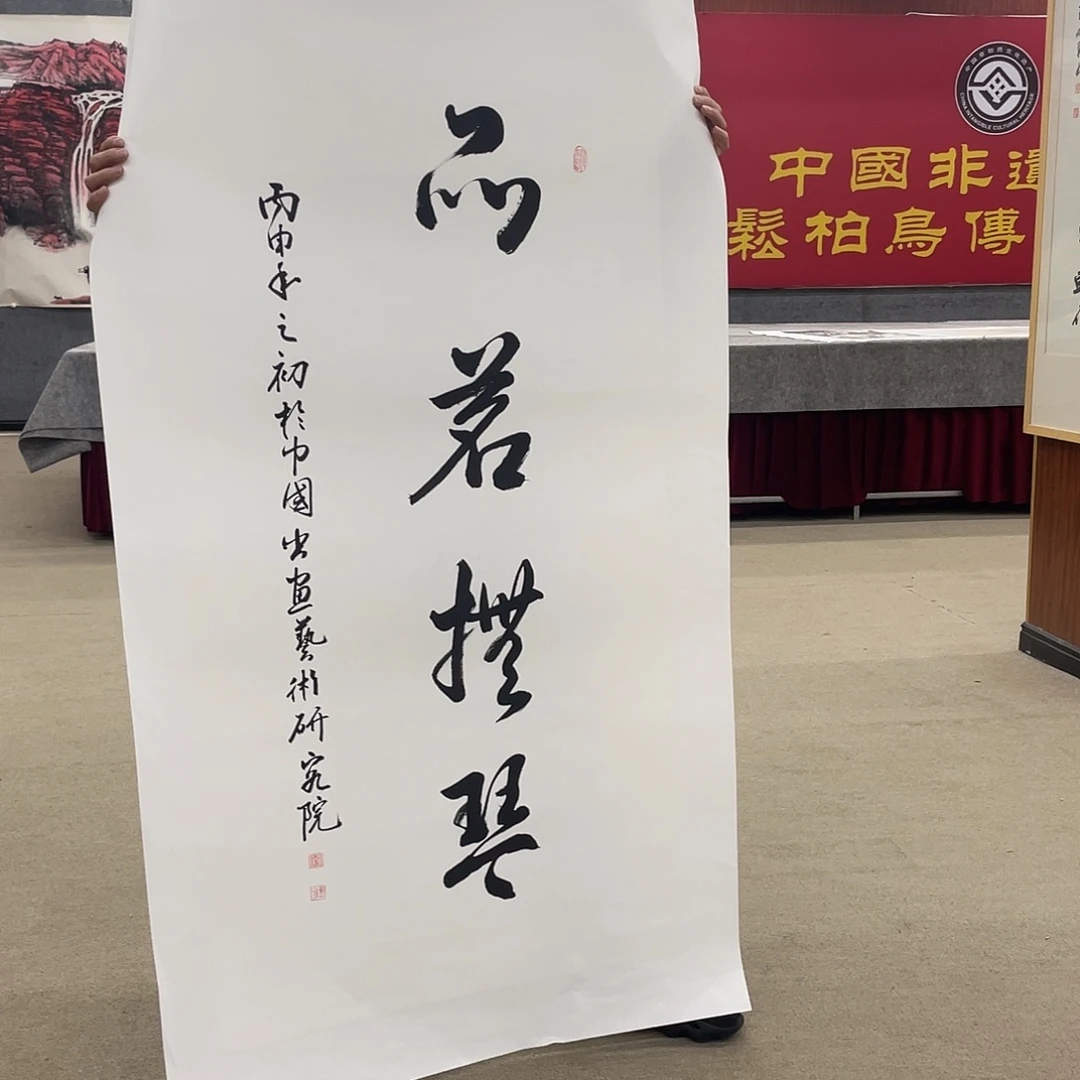 品茗撫琴
丙申年之初於中國書畫藝術研究院
中國非遺
鬆柏鳥傳
CHINA INTANGIBLE CULTURAL HERITAGE